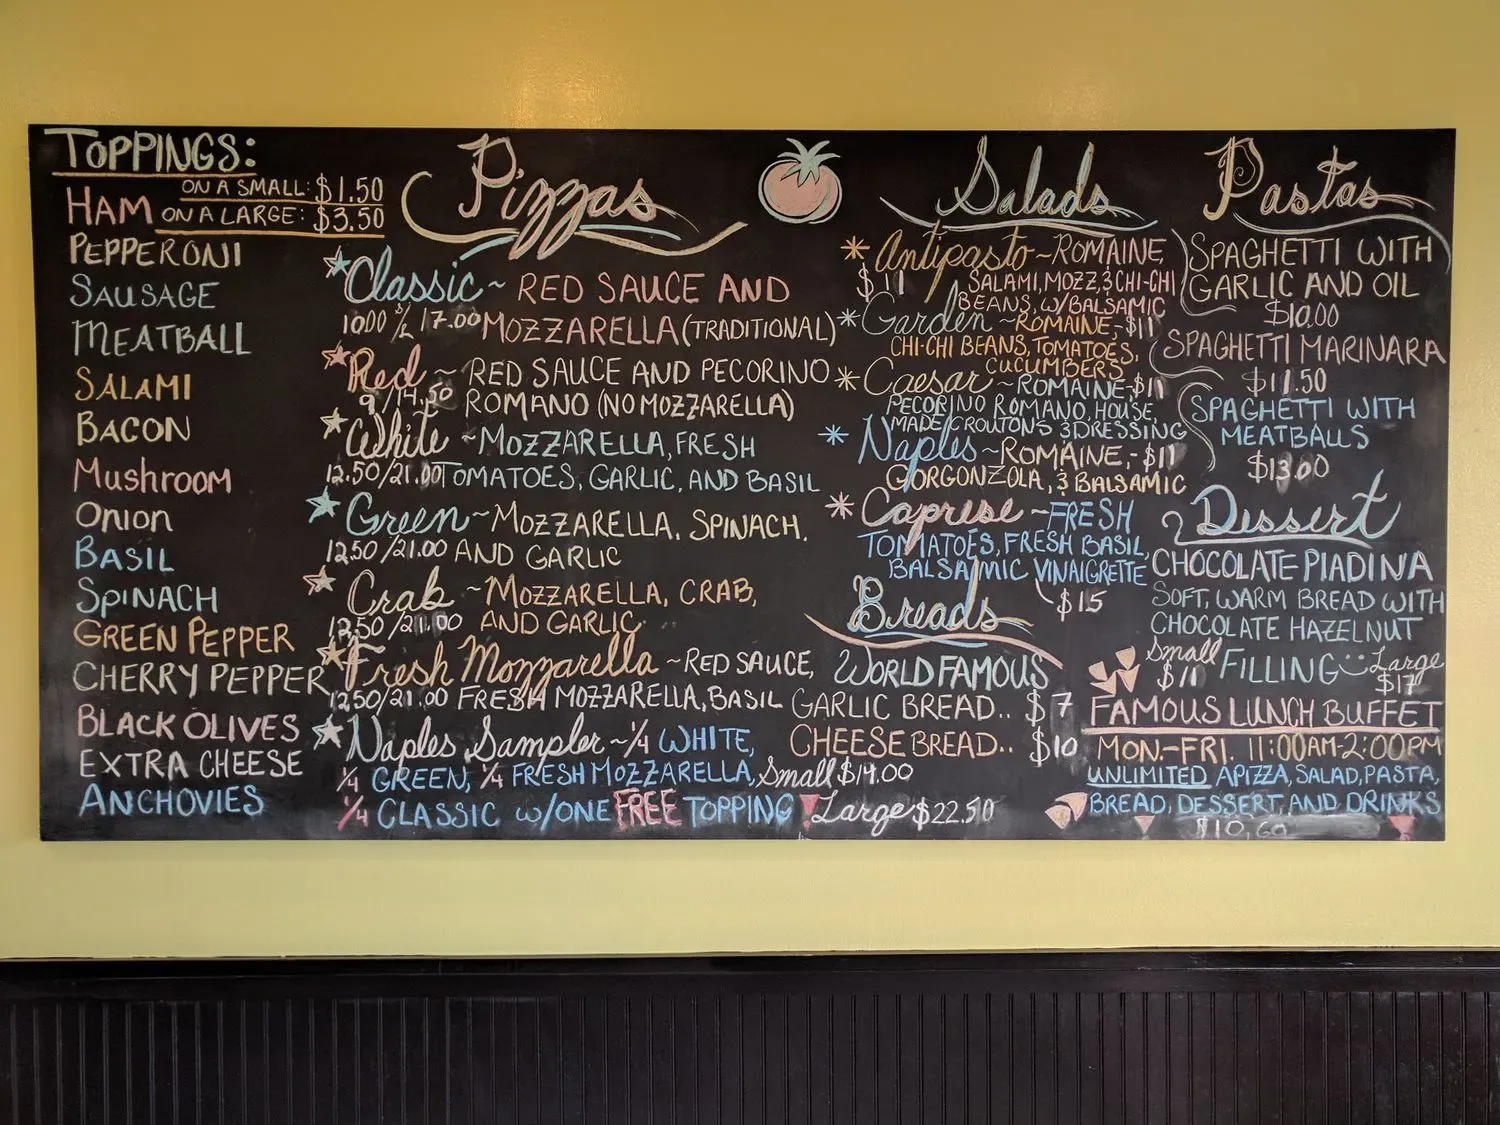 TOPPINGS:
ON A SMALL: $1.50
ON A LARGE: $3.50
HAM
PEPPERONI
SAUSAGE
MEATBALL
SALAMI
BACON
Mushroom
Onion
BASIL
SPINACH
GREEN PEPPER
CHERRY PEPPER
BLACK OLIVES
EXTRA CHEESE
ANCHOVIES
Pizzas
Classic ~ RED SAUCE AND
1000 S/L 17.00 MOZZARELLA (TRADITIONAL)
Red ~ RED SAUCE AND PECORINO
9/14.50 ROMANO (NO MOZZARELLA)
White ~ MOZZARELLA, FRESH
12.50/21.00 TOMATOES, GARLIC, AND BASIL
Green ~ MOZZARELLA, SPINACH,
12.50/21.00 AND GARLIC
Crab ~ MOZZARELLA, CRAB,
12.50/21.00 AND GARLIC
Fresh Mozzarella ~ RED SAUCE,
12.50/21.00 FRESH MOZZARELLA, BASIL
Naples Sampler ~ 1/4 WHITE,
1/4 GREEN, 1/4 FRESH MOZZARELLA, Small $14.00
1/4 CLASSIC w/ONE FREE TOPPING Large $22.50
Salads
Antipasto ~ ROMAINE,
$11 SALAMI, MOZZ, & CHI-CHI
BEANS, W/BALSAMIC
Garden ~ ROMAINE, -$11
CHI-CHI BEANS, TOMATOES,
CUCUMBERS
Caesar ~ ROMAINE -$11
PECORINO ROMANO, HOUSE,
MADE CROUTONS & DRESSING
Naples ~ ROMAINE, -$11
GORGONZOLA, & BALSAMIC
Caprese ~ FRESH
TOMATOES, FRESH BASIL,
BALSAMIC VINAIGRETTE
$15
Breads
WORLD FAMOUS
GARLIC BREAD.. $7
CHEESE BREAD.. $10
Pastas
SPAGHETTI WITH
GARLIC AND OIL
$10.00
SPAGHETTI MARINARA
$11.50
SPAGHETTI WITH
MEATBALLS
$13.00
Dessert
CHOCOLATE PIADINA
SOFT, WARM BREAD WITH
CHOCOLATE HAZELNUT
FILLING
Small $11
Large $17
FAMOUS LUNCH BUFFET
MON.-FRI. 11:00AM-2:00PM
UNLIMITED APIZZA, SALAD, PASTA,
BREAD, DESSERT, AND DRINKS
$10.60